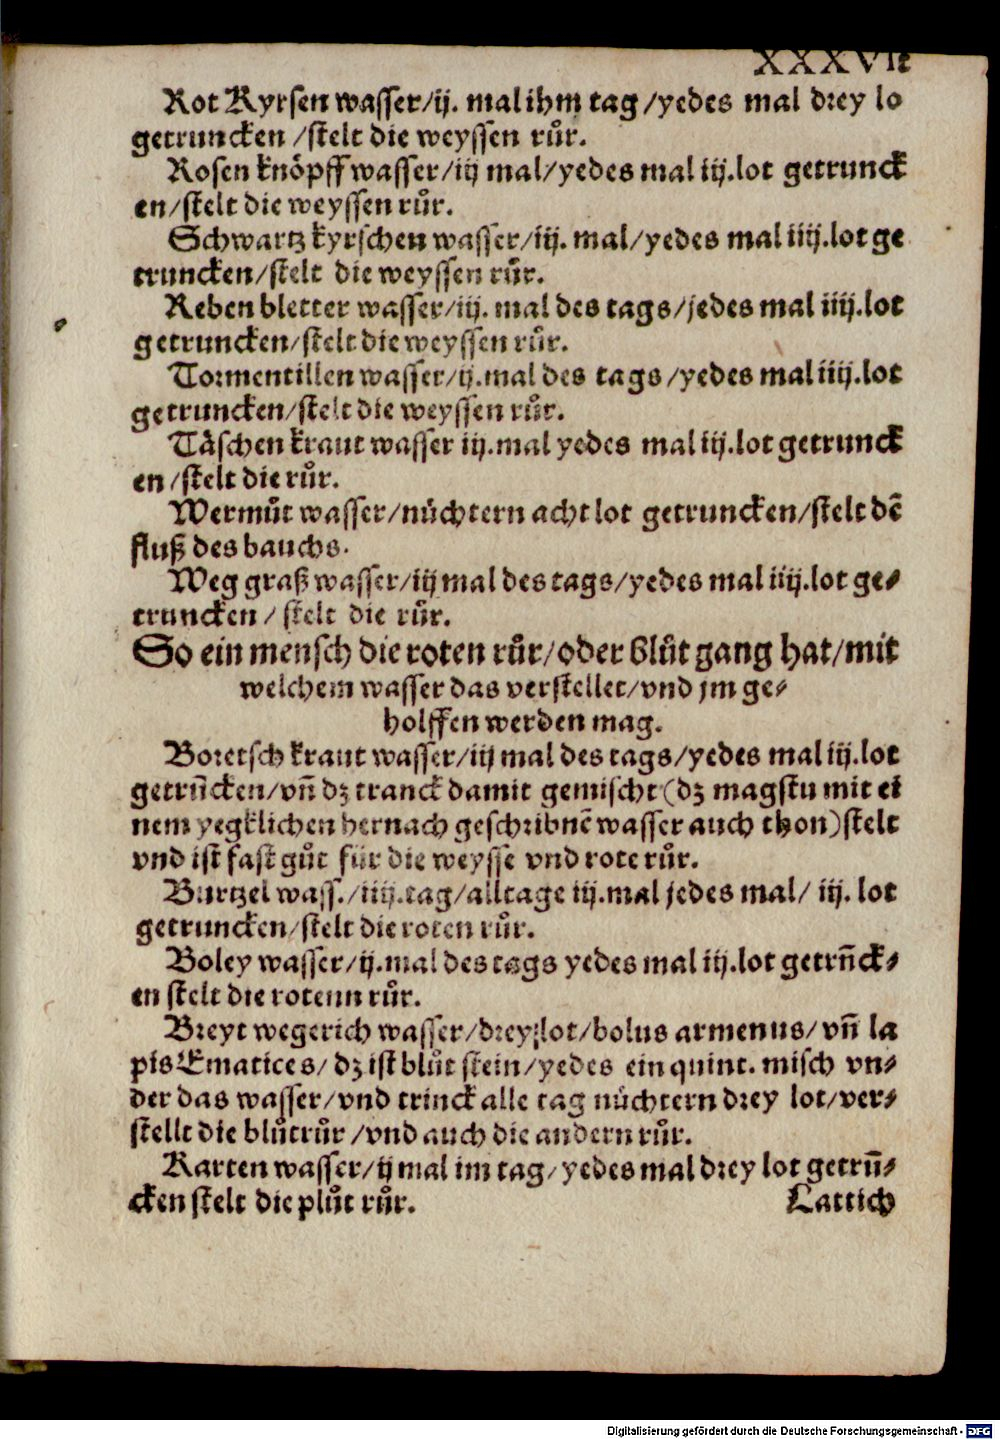 XXXVII
Rot Kyrsen wasser/ij. mal ihm tag/yedes mal drey lo
getruncken/stelt die weyssen růr.
Rosen knöpff wasser/iij mal/yedes mal iij.lot getrunck
en/stelt die weyssen růr.
Schwartz kyrschen wasser/iij. mal/yedes mal iiij.lot ge
truncken/stelt die weyssen růr.
Reben bletter wasser/iij. mal des tags/jedes mal iiij.lot
getruncken/stelt die weyssen růr.
Tormentillen wasser/ij.mal des tags/yedes mal iiij.lot
getruncken/stelt die weyssen růr.
Täschen kraut wasser iij.mal yedes mal iij.lot getrunck
en/stelt die růr.
Wermůt wasser/nüchtern acht lot getruncken/stelt dē
fluß des bauchs.
Weg graß wasser/iij mal des tags/yedes mal iiij.lot ge⸗
truncken/ stelt die růr.
So ein mensch die roten růr/oder blůt gang hat/mit
welchem wasser das verstellet/vnd jm ge⸗
holffen werden mag.
Boretsch kraut wasser/iij mal des tags/yedes mal iij.lot
getrūcken/vn̄ dz tranck damit gemischt(dz magstu mit ei
nem yegklichen hernach geschribnē wasser auch thon)stelt
vnd ist fast gůt für die weysse vnd rote růr.
Burtzel wass./iiij.tag/alltage iij.mal jedes mal/ iij. lot
getruncken/stelt die roten růr.
Boley wasser/ij.mal des tags yedes mal iij.lot getrūck⸗
en stelt die rotenn růr.
Breyt wegerich wasser/drey lot/bolus armenus/vn̄ la
pis Ematices/dz ist blůt stein/yedes ein quint. misch vn⸗
der das wasser/vnd trinck alle tag nüchtern drey lot/ver⸗
stellt die blůtrůr/vnd auch die andern růr.
Karten wasser/ij mal im tag/yedes mal drey lot getrū⸗
cken stelt die plůt růr.
Lattich
Digitalisierung gefördert durch die Deutsche Forschungsgemeinschaft - DFG